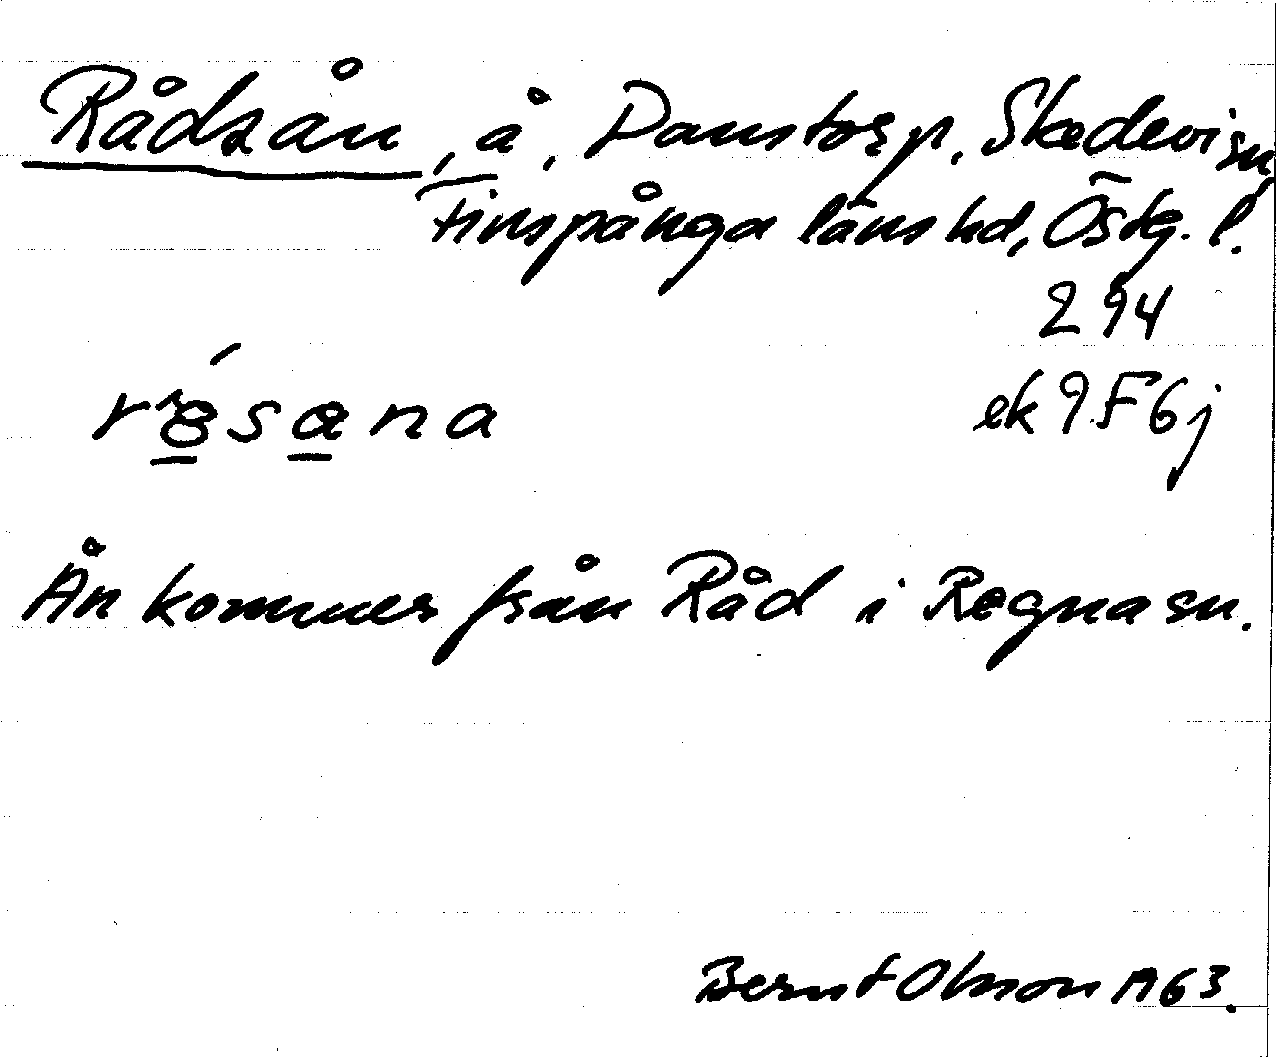 Rådsån, å, Danstorp, Skedevi sn,
Finspånga läns hd, Östg. l.
294
ek 9F6j
Ån kommer från Råd i Regna sn.
Bernt Olsson 1963.